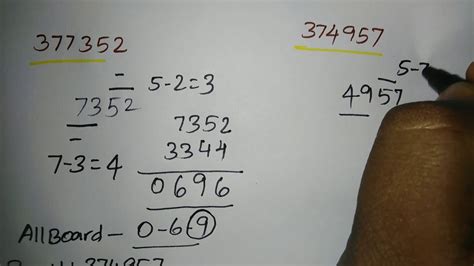 377352
5-2=3
7352
7-3=4
7352
3344
0696
All Board - 0-6-9
374957
5-7
4957